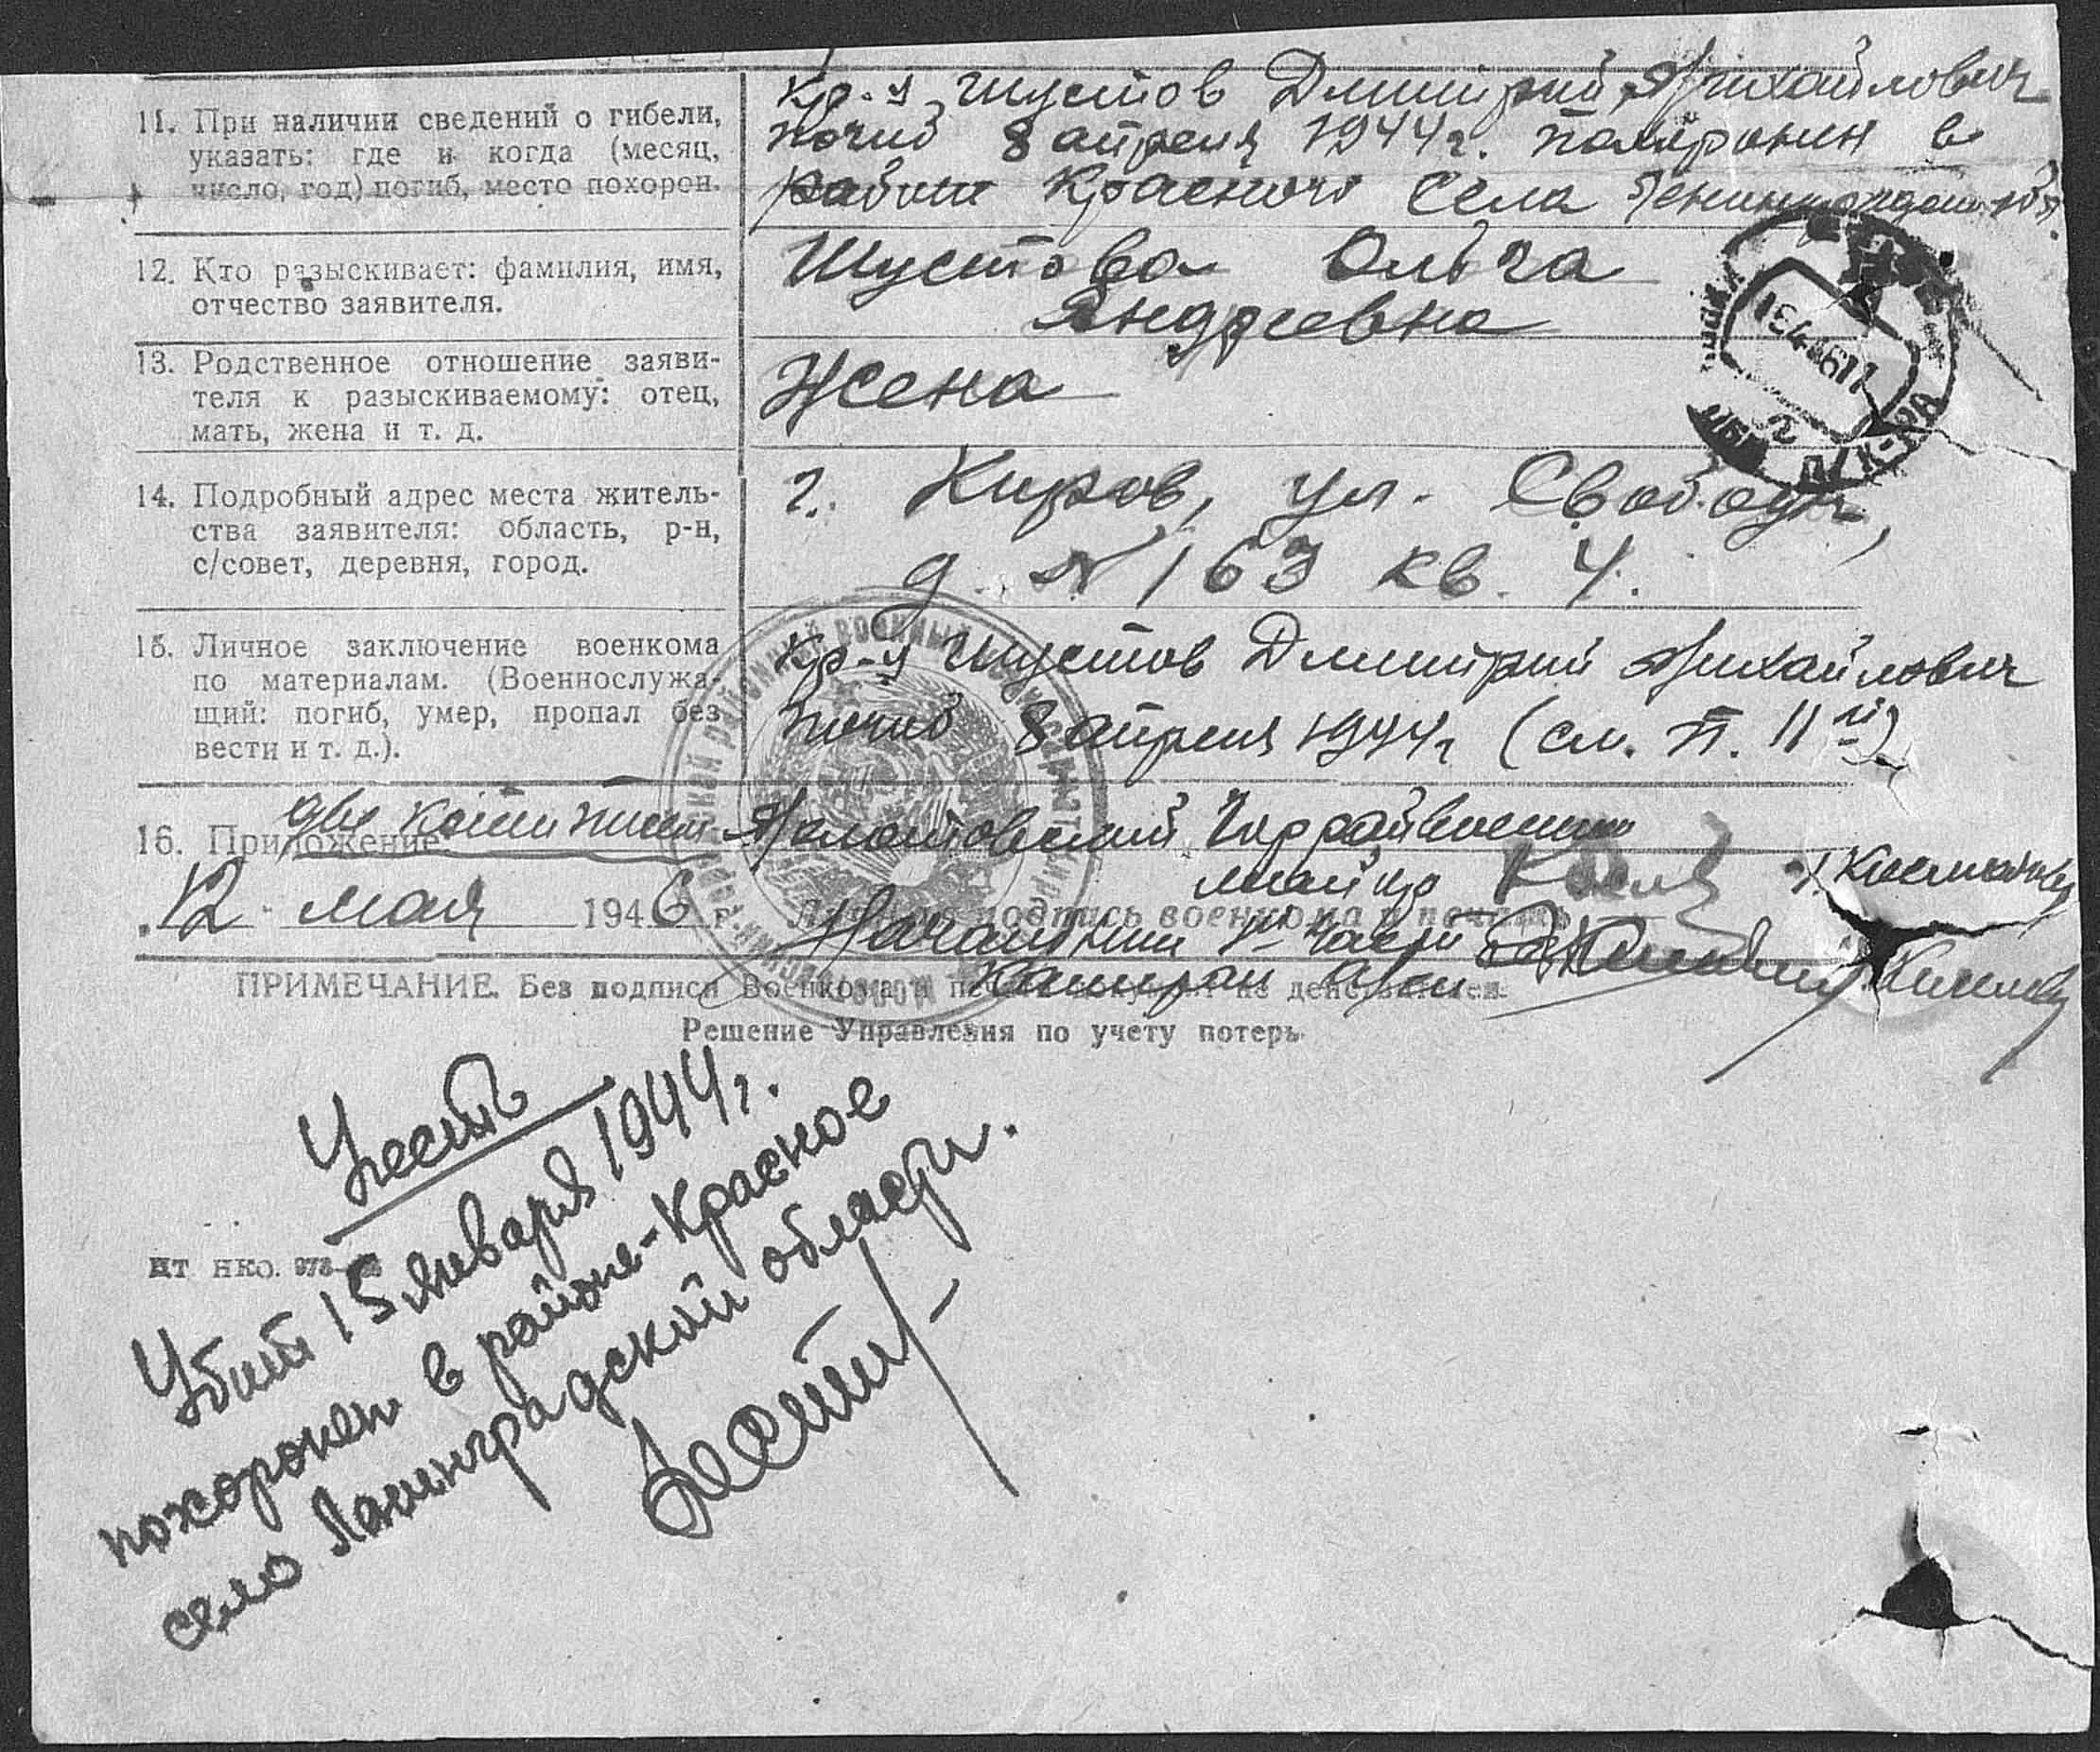 11. При наличии сведений о гибели,
указать: где и когда (месяц,
число, год) погиб, место похорон.
кр-ц Шустов Дмитрий Михайлович
погиб 8 апреля 1944 г. похоронен в
районе Красного Села Ленинградск. обл.
12. Кто разыскивает: фамилия, имя,
отчество заявителя.
Шустова Ольга
Андреевна
13. Родственное отношение заяви-
теля к разыскиваемому: отец,
мать, жена и т. д.
Жена
14. Подробный адрес места житель-
ства заявителя: область, р-н,
с/совет, деревня, город.
г. Киров, ул. Свободы,
д. № 163 кв. 4.
15. Личное заключение военкома
по материалам. (Военнослужа-
щий: погиб, умер, пропал без
вести и т. д.).
кр-ц Шустов Дмитрий Михайлович
погиб 8 апреля 1944 г (см. п. 11й)
16. Приложение: две копии писем
Молотовский Горрайвоенком
майор
12 мая 1946 г. Личная подпись военкома и печать
Начальник 1й части
Капитан адм.
ПРИМЕЧАНИЕ. Без подписи Военкома и печати документ не действителен.
Решение Управления по учету потерь
Учесть
Убит 15 января 1944 г.
похоронен в районе-Красное
село Ленинградской области.
ШТ НКО. 973